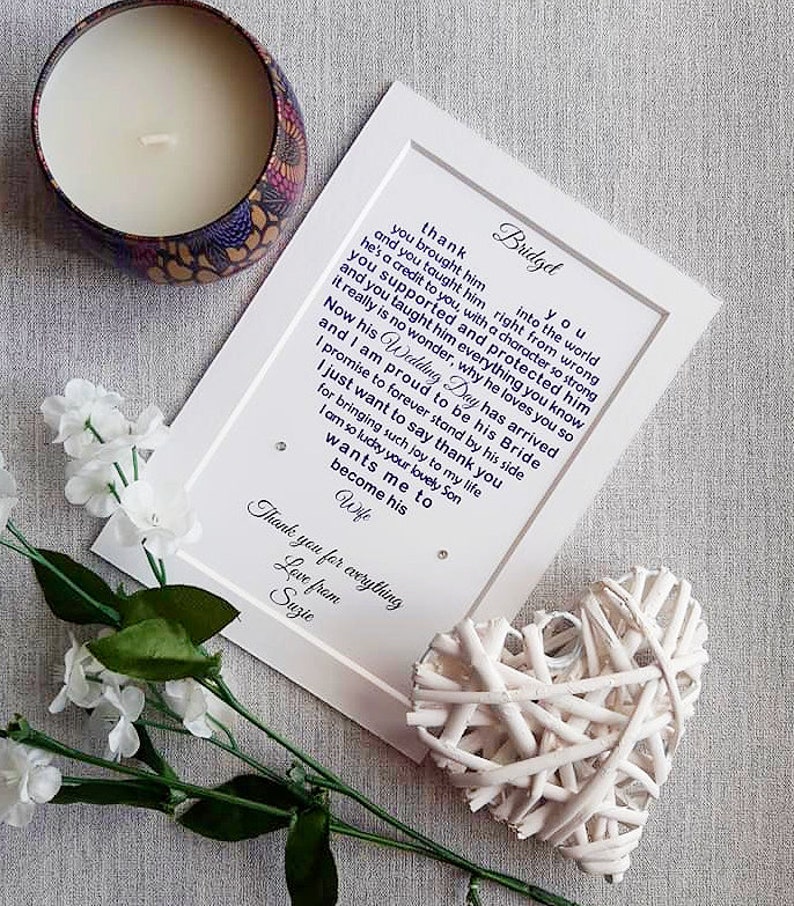 Bridget
thank you
you brought him into the world
and you taught him right from wrong
he's a credit to you, with a character so strong
you supported and protected him
and you taught him everything you know
it really is no wonder, why he loves you so
Now his Wedding Day has arrived
and I am proud to be his Bride
I promise to forever stand by his side
I just want to say thank you
for bringing such joy to my life
I am so lucky your lovely Son
wants me to
become his
Wife
Thank you for everything
Love from
Suzie